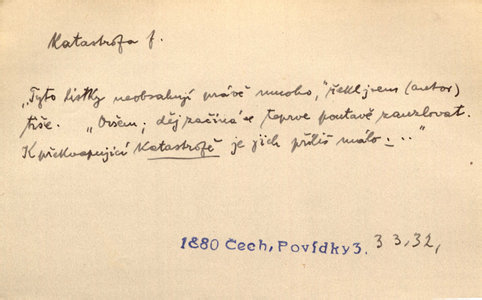 Katastrofa f.
„Tyto lístky neobsahují právě mnoho,“ řekl jsem (autor)
tiše. „Ovšem; děj začíná se teprve poutavě zauzlovat.
K překvapující katastrofě je jich příliš málo – ..“
1880 Čech, Povídky 3. 3 3, 32,